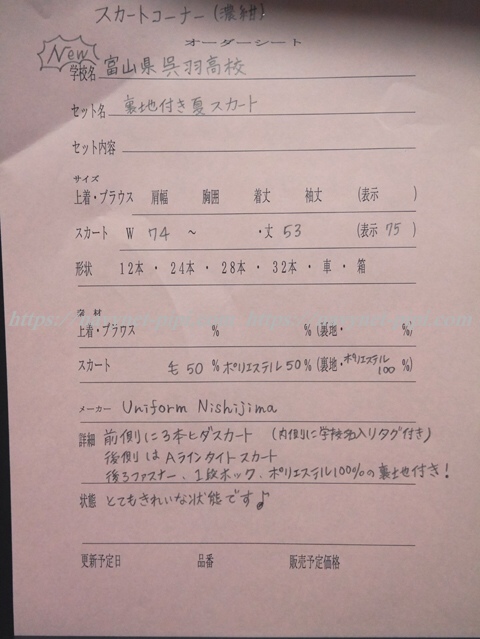 スカートコーナー(濃紺)
オーダーシート
New
学校名 富山県呉羽高校
セット名 裏地付き夏スカート
セット内容
サイズ
上着・ブラウス 肩幅 胸囲 着丈 袖丈 (表示 )
スカート W 74 ~ ・丈 53 (表示 75)
形状 12本・24本・28本・32本・車・箱
素材
上着・ブラウス % % (裏地・ %)
スカート 毛 50 % ポリエステル 50 % (裏地・ポリエステル 100 %)
メーカー Uniform Nishijima
詳細 前側に3本ヒダスカート (内側に学校名入りタグ付き)
後側はAラインタイトスカート
後ろファスナー、1段ホック、ポリエステル100%の裏地付き!
状態 とてもきれいな状態です♪
更新予定日 品番 販売予定価格